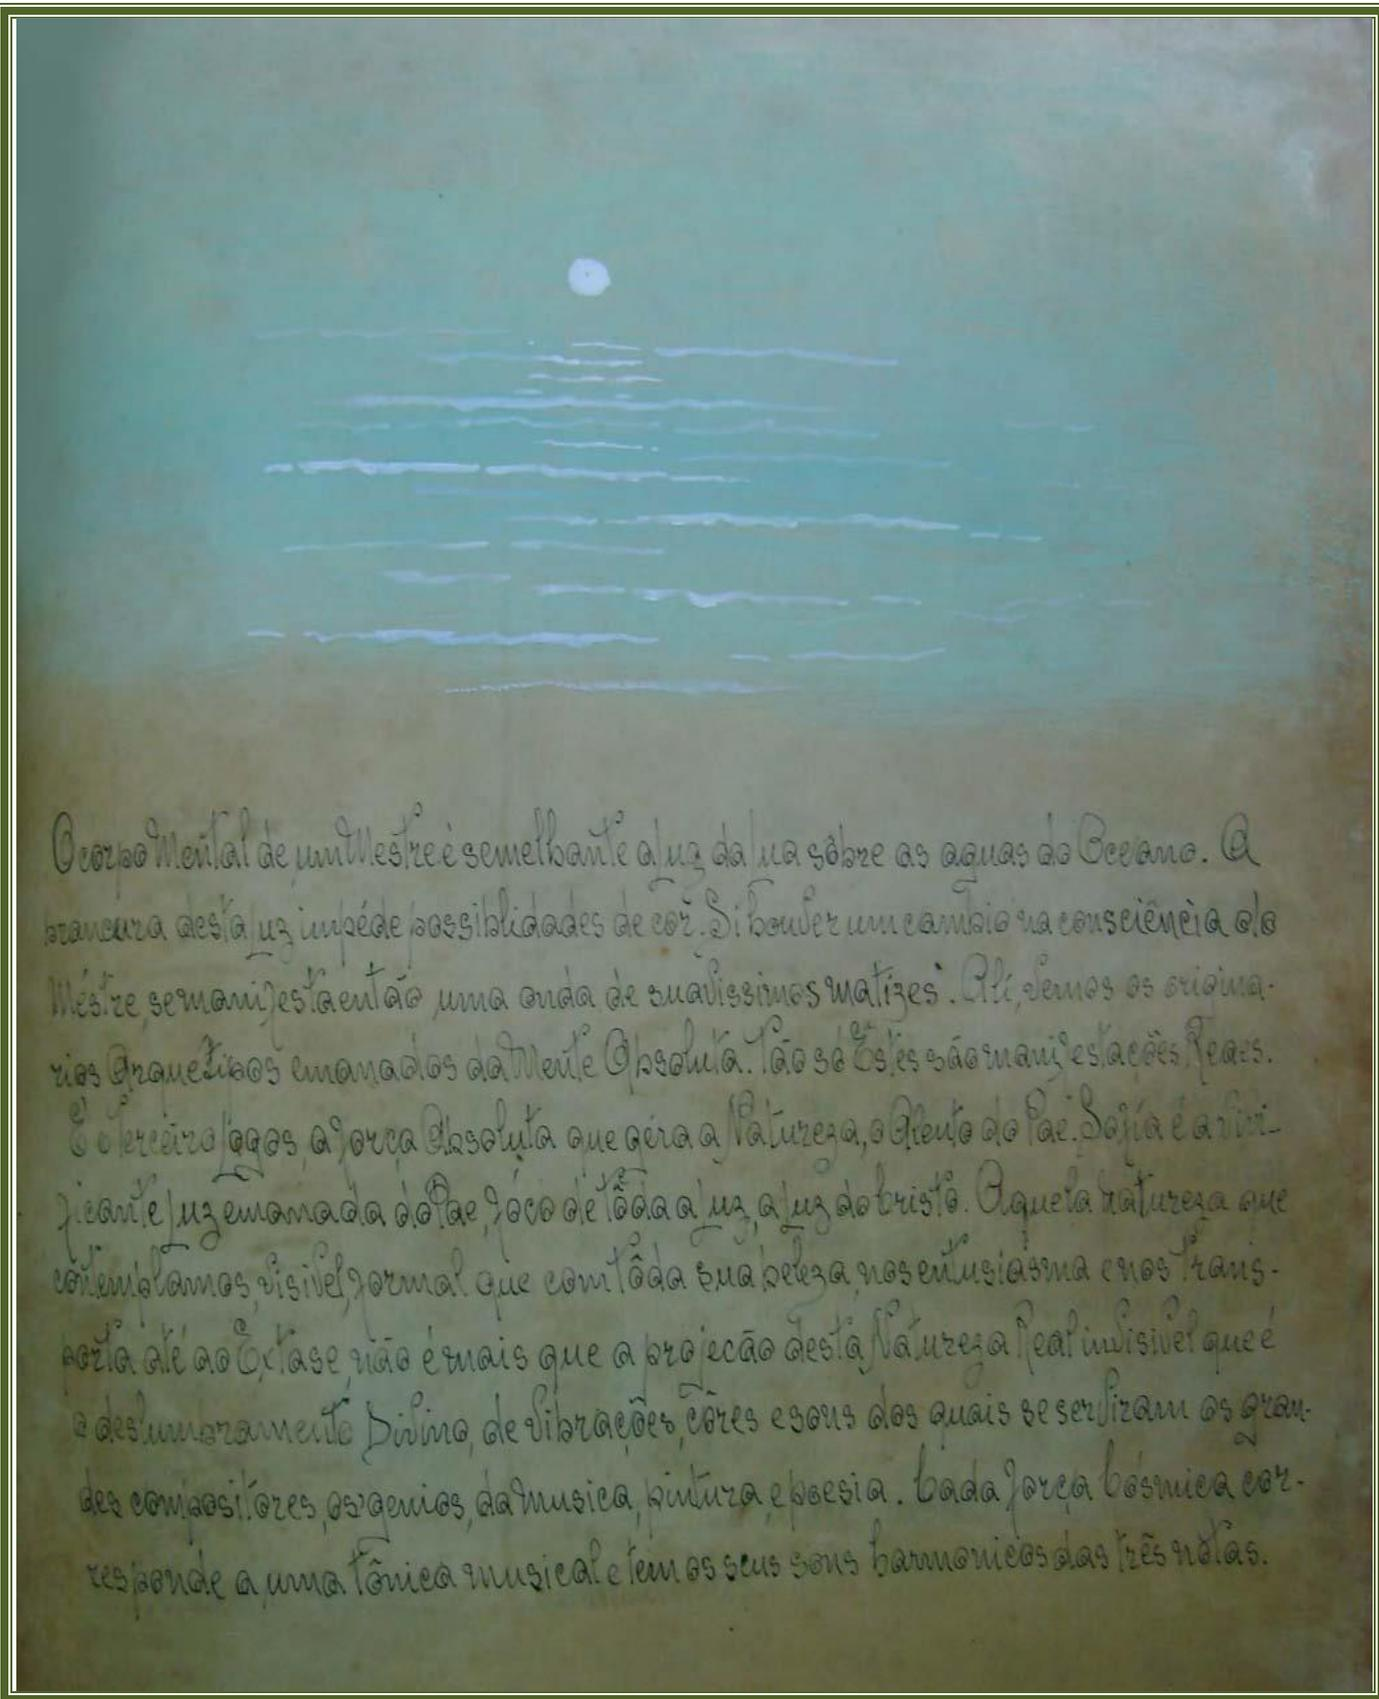 O corpo Mental de um Mestre é semelhante a luz da lua sôbre as aguas do Oceano. A
brancura desta luz impéde possiblidades de cor. Si houver um cambio na consciência do
Méstre, se manifesta então uma onda de suavissimos matizes. Ali, vemos os origina-
rios Arquetipos emanados da Mente Absoluta. Tão só Estes são manifestações Reaes.
É o Terceiro Logos, a força Absoluta que géra a Natureza, o Alento do Pae. Sofía é a vivi-
ficante luz emanada do Pae, fóco de tôda a luz, a luz do Cristo. Aquela natureza que
contemplamos, visivel, formal que com tôda sua beleza, nos entusiásma e nos trans-
porta até ao Extase, não é mais que a projecão desta Natureza Real invisivel que é
o deslumbramento Divino, de vibrações, côres e sons dos quais se serviram os gran-
des compositores, os genios, da musica, pintura, e poesia. Cada força Cósmica cor-
responde a uma tônica musical e tem os seus sons harmonicos das três notas.